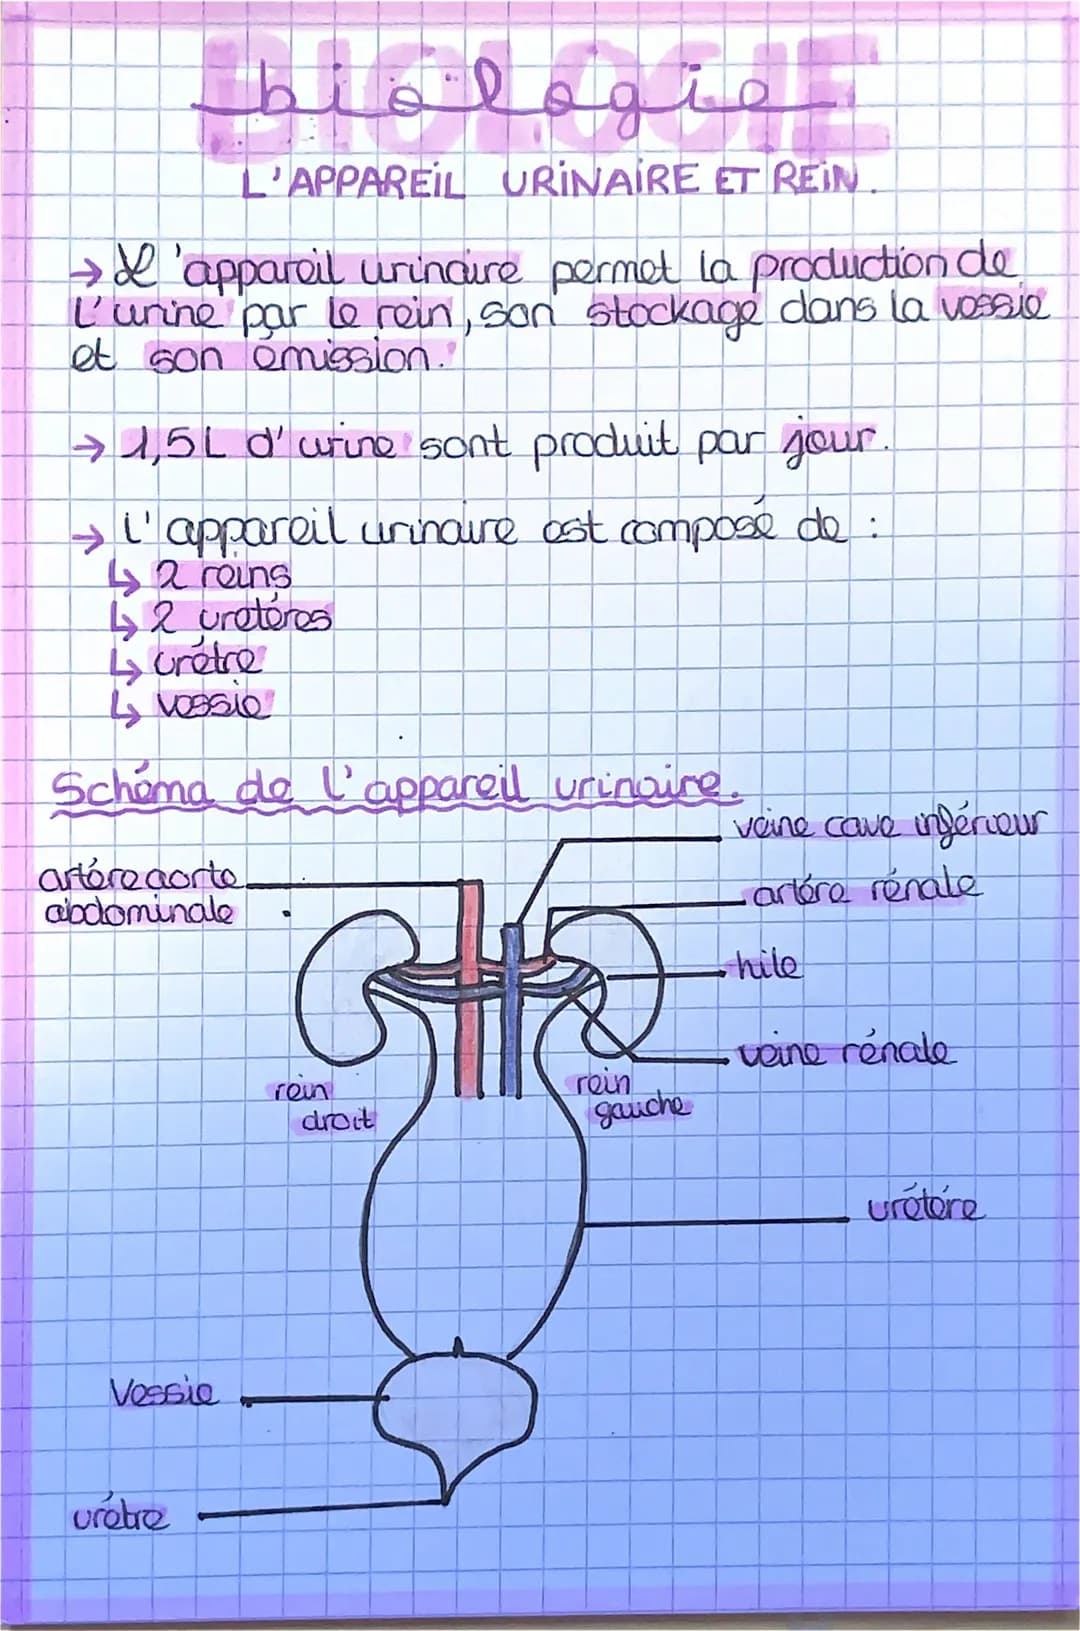 BIOLOGIE
biologie
L'APPAREIL URINAIRE ET REIN.
→ L'appareil urinaire permet la production de
l'urine par le rein, son stockage dans la vessie
et son émission.
→ 1,5L d'urine sont produit par jour.
→ l'appareil urinaire est composé de :
↳ 2 reins
↳ 2 uretères
↳ urètre
↳ vessie
Schéma de l'appareil urinaire.
veine cave inférieur
artère aorte
abdominale
artère rénale
hile
veine rénale
rein
droit
rein
gauche
urétère
Vessie
urètre